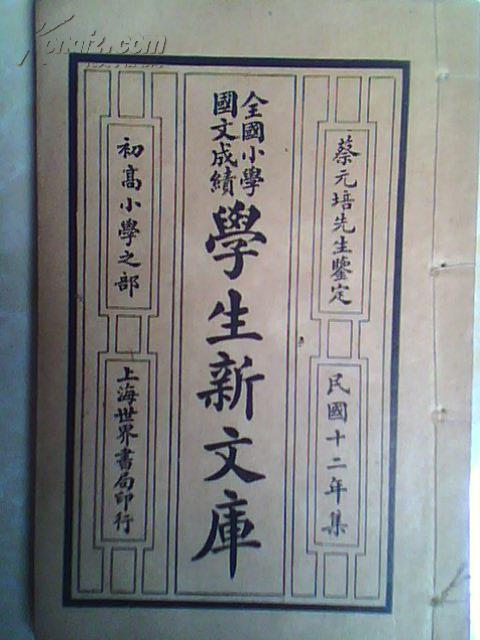 蔡元培先生鑒定
民國十二年集
全國小學
國文成績
學生新文庫
初高小學之部
上海世界書局印行
Kongfz.com